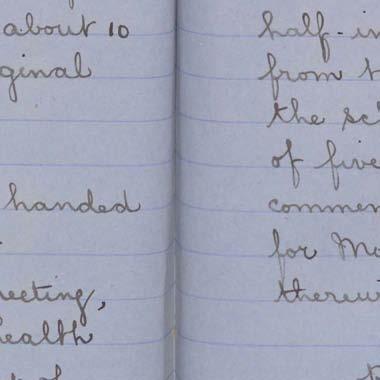 about 10
ginal
handed
eeting,
ealth
half-in
from t
the sc
of five
commen
for Mo
thereu